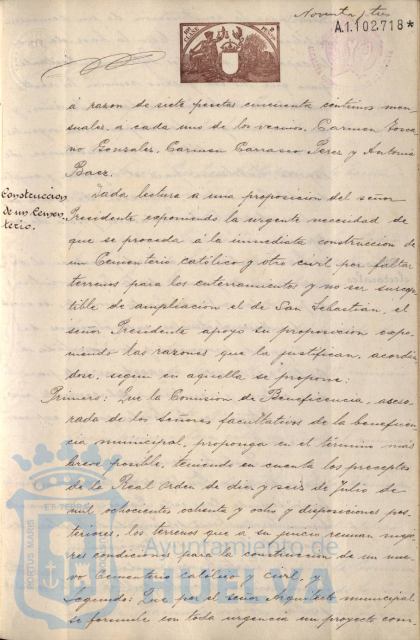 Noventa y tres
A.1.102.718*
á razon de siete pesetas cincuenta céntimos men-
suales, á cada uno de los vecinos, Carmen Tosca-
no Gonzalez, Carmen Carrasco Perez y Antonia
Baez.
Construccion
de un Cemen-
terio.
Dada lectura a una proposicion del señor
Presidente exponiendo la urgente necesidad de
que se proceda á la inmediata construccion de
un Cementerio católico y otro civil por faltar
terrenos para los enterramientos y no ser suscep-
tible de ampliacion el de San Sebastian, el
señor Presidente apoyó su proposicion expo-
niendo las razones que la justifican, acordán-
dose, segun en aquella se propone:
Primero: Que la Comision de Beneficencia, aseso-
rada de los señores facultativos de la beneficen-
cia municipal, proponga en el término más
breve posible, teniendo en cuenta los preceptos
de la Real orden de diez y seis de Julio de
mil ochocientos ochenta y ocho y disposiciones pos-
teriores, los terrenos que á su juicio reunan mejo-
res condiciones para la construccion de un nue-
vo Cementerio católico y civil, y
Segundo: Que por el señor Arquitecto municipal
se formule con toda urgencia un proyecto com-
PORTUS MARIS
ET TERRAE
Ayuntamiento de
HUELVA